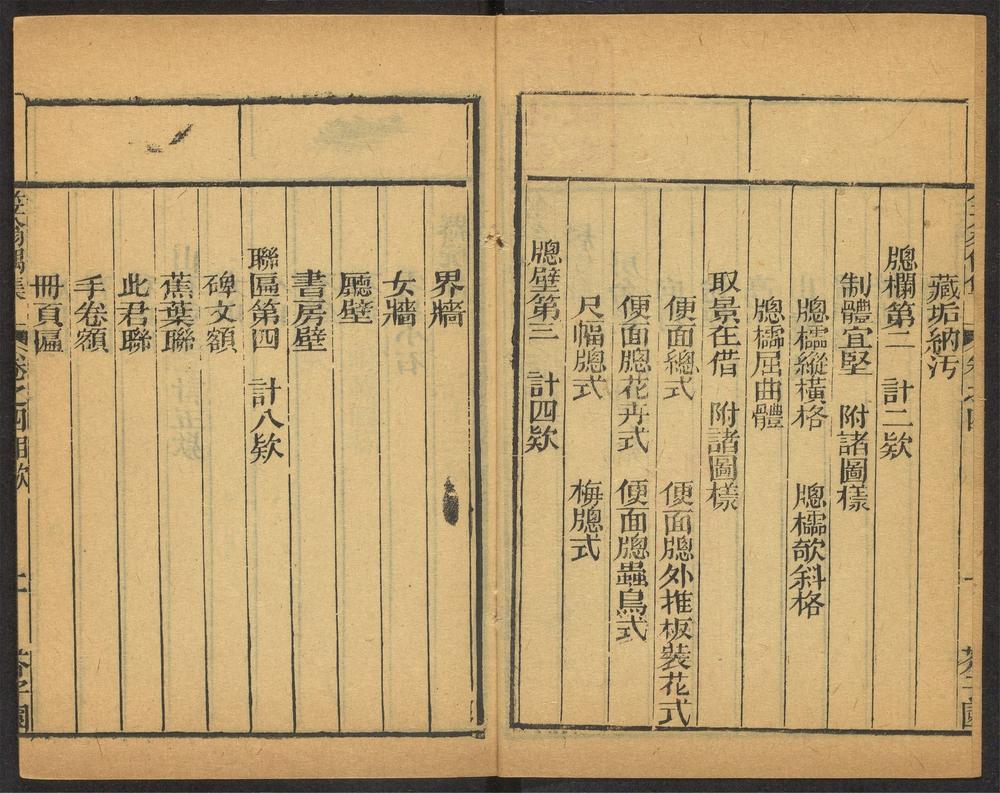 藏垢納汚
牕欄第二　計二欵
制體宜堅　附諸圖樣
牕櫺縱橫格　牕櫺欹斜格
牕櫺屈曲體
取景在借　附諸圖樣
便面緫式　便面牕外推板裝花式
便面牕花卉式　便面牕蟲鳥式
尺幅牕式　梅牕式
牕壁第三　計四欵
界牆
女牆
廳壁
書房壁
聯匾第四　計八欵
碑文額
蕉葉聯
此君聯
手卷額
冊頁匾
笠翁偶集　卷之四目欵　芥子園